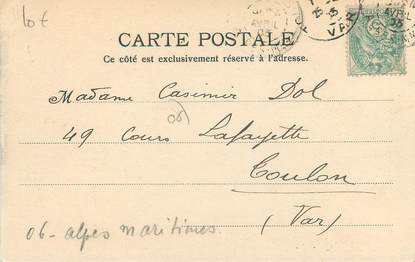 lot
CARTE POSTALE
Ce côté est exclusivement réservé à l'adresse.
VAR
Madame Casimir Dol
06
49 Cours Lafayette
Toulon
(Var)
06 - alpes maritimes.